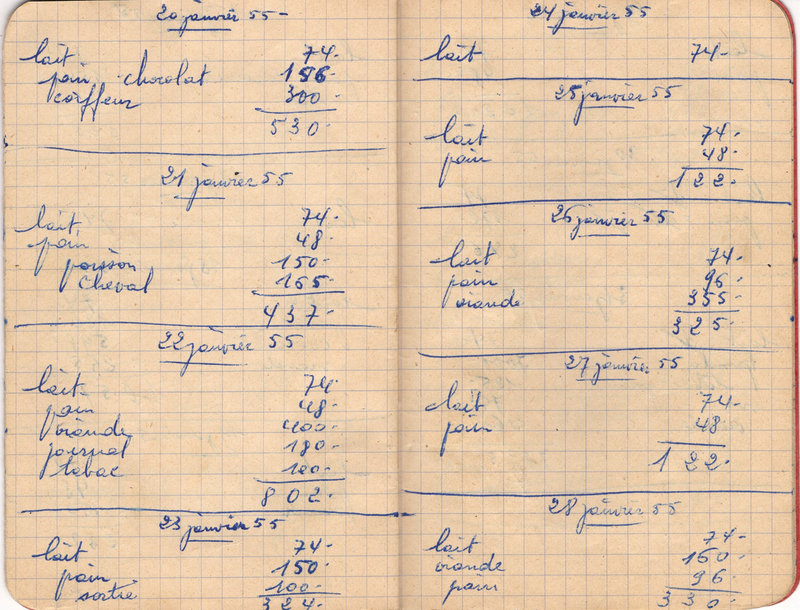 20 janvier 55-
lait 74-
pain chocolat 156-
coiffeur 300-
530-
21 janvier 55
lait 74-
pain 48-
poisson 150-
cheval 165-
437-
22 janvier 55
lait 74-
pain 48-
viande 400-
journal 180-
tabac 100-
802-
23 janvier 55
lait 74-
pain 150-
sortie 100-
324-
24 janvier 55
lait 74-
25 janvier 55
lait 74-
pain 48-
122-
26 janvier 55
lait 74-
pain 96-
viande 355-
325-
27 janvier 55
lait 74-
pain 48-
122-
28 janvier 55
lait 74-
viande 160-
pain 96-
330-